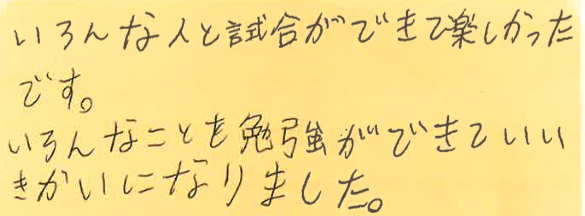 いろんな人と試合ができて楽しかった
です。
いろんなことも勉強ができていい
きかいになりました。